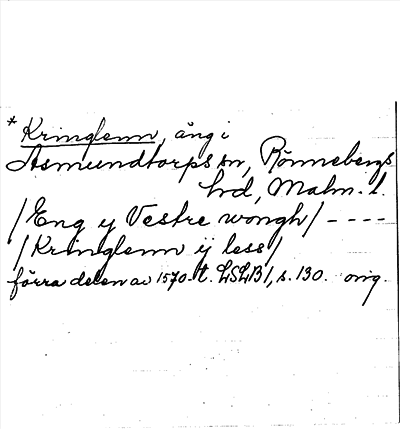 * Kringlenn, äng i
Asmundtorps sn, Rönnebergs
hd, Malm. l.
/Eng y Vestre wongh/ ----
/Kringlenn ij less/
förra delen av 1570-t. LSLB1, s. 130. orig.